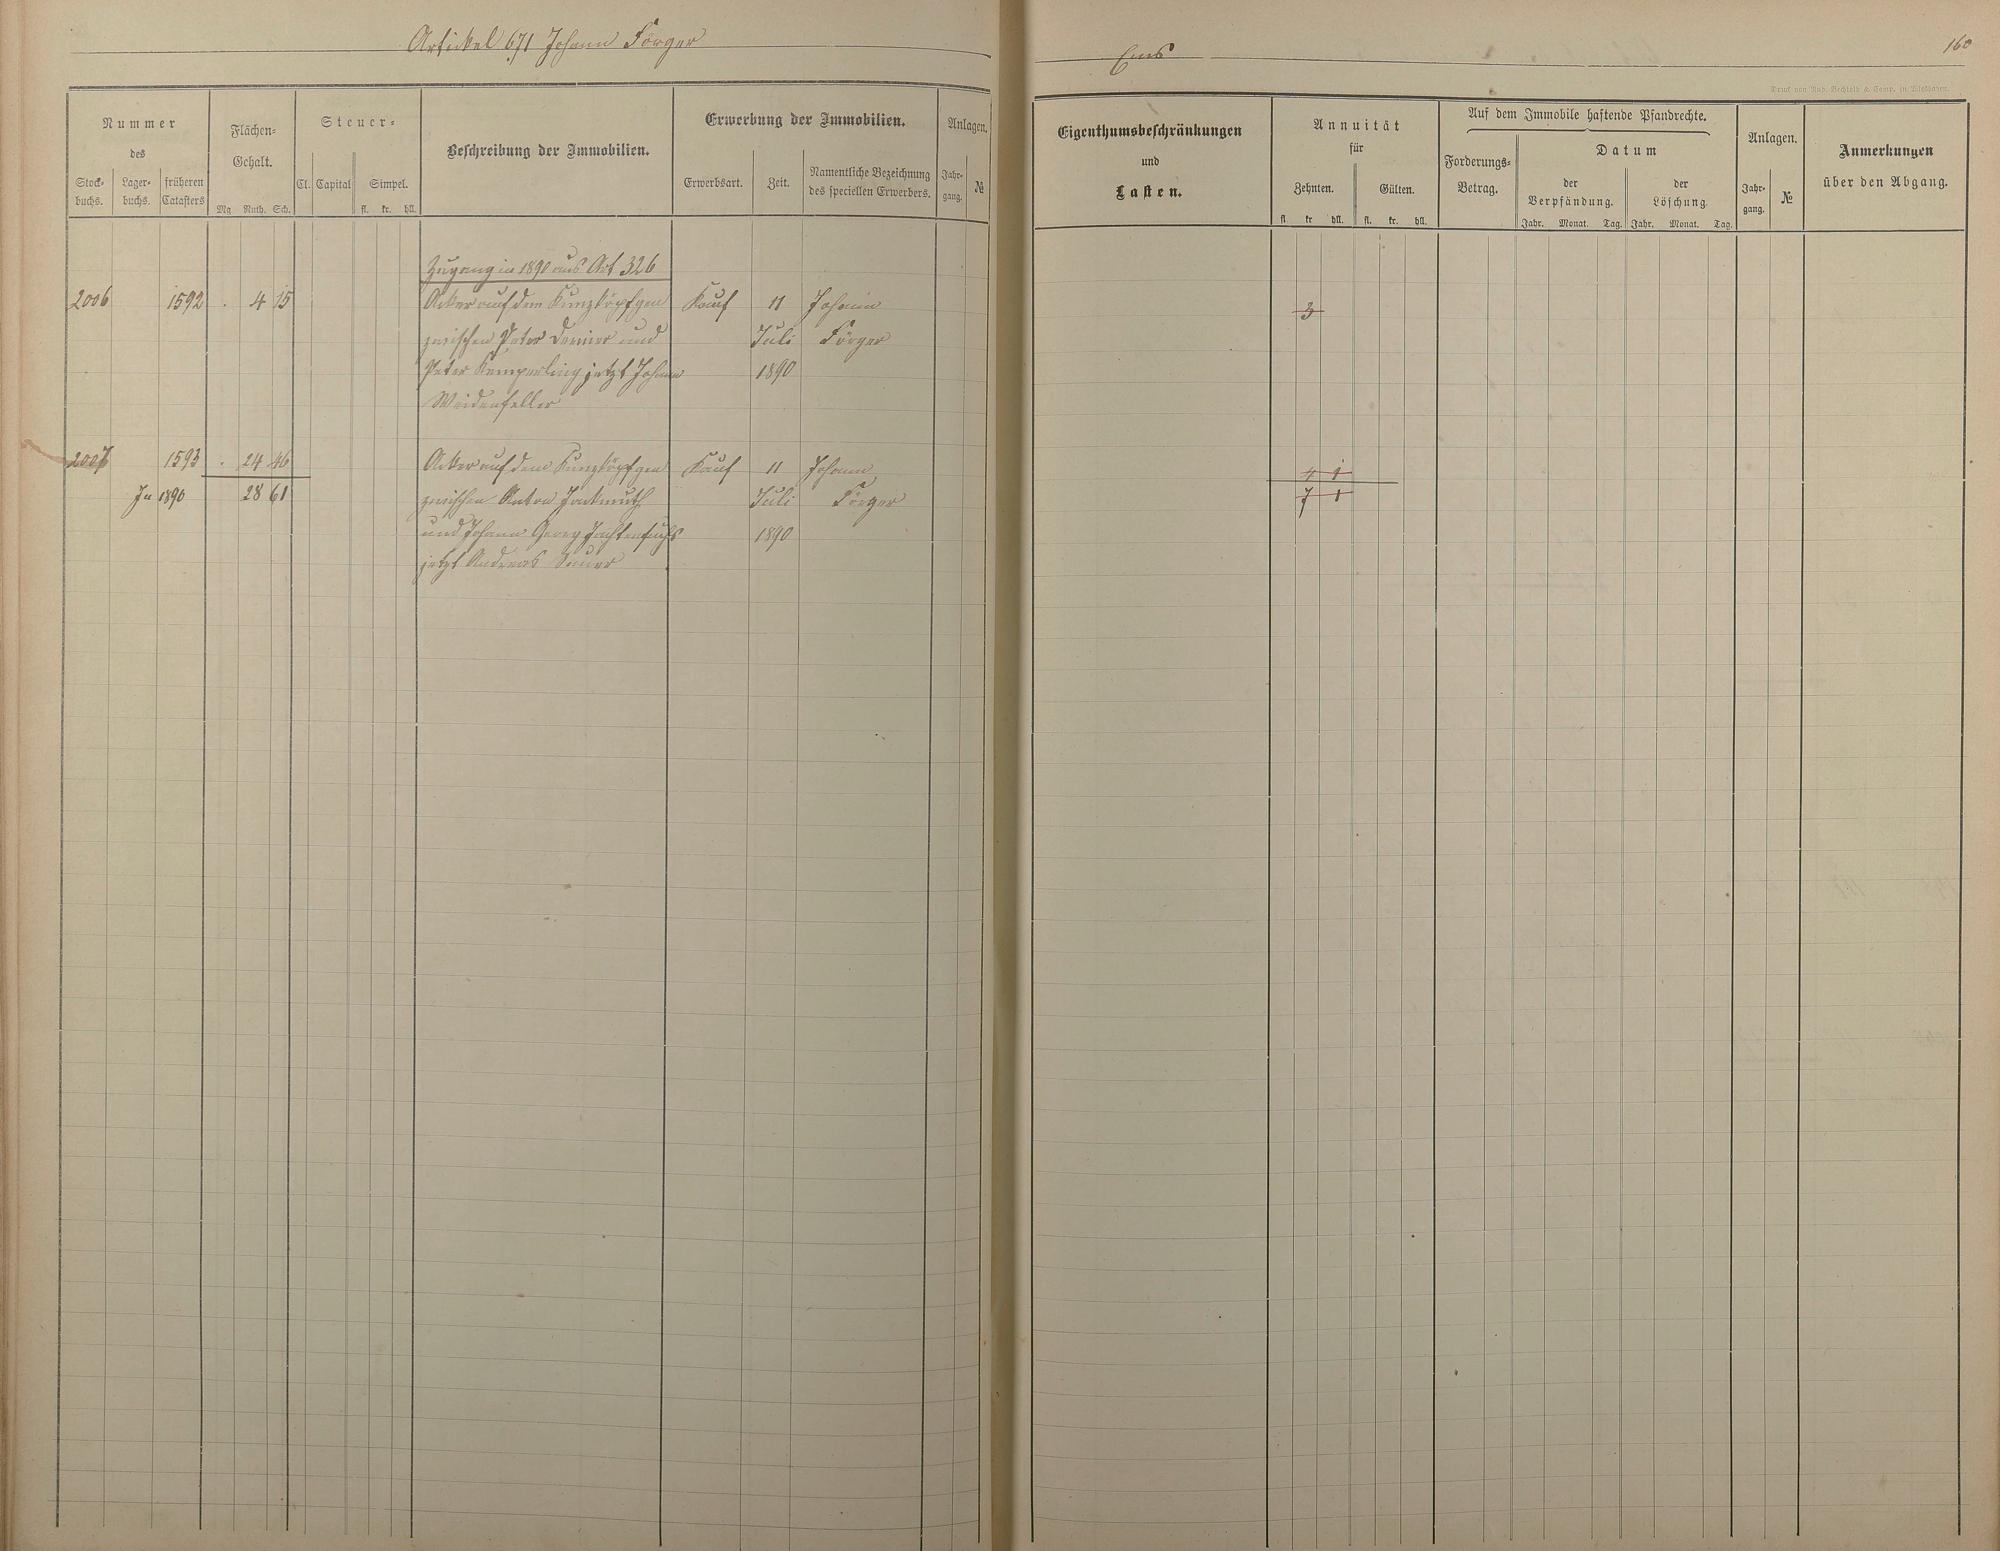 Artickel 671 Johann Förger
Ems
160
Druck von Rud. Bechtold & Comp. in Wiesbaden.
Nummer
des
Stock-
buchs.
Lager-
buchs.
früheren
Catasters
Flächen-
Gehalt.
Mg. Ruth. Sch.
Steuer-
Cl. Capital Simpel.
fl. kr. hll.
Beschreibung der Immobilien.
Erwerbung der Immobilien.
Erwerbsart. Zeit.
Namentliche Bezeichnung
des speciellen Erwerbers.
Anlagen.
Jahr-
gang.
№
Eigenthumsbeschränkungen
und
Lasten.
Annuität
für
Zehnten. Gülten.
fl. kr. hll. fl. kr. hll.
Auf dem Immobile haftende Pfandrechte.
Forderungs-
Betrag.
Datum
der
Verpfändung.
Jahr. Monat. Tag.
der
Löschung.
Jahr. Monat. Tag.
Anlagen.
Jahr-
gang.
№
Anmerkungen
über den Abgang.
Zugang in 1890 aus Art 326
2006 1592 . 4 15 Acker auf dem Kunzköpfgen Kauf 11 Johann 3
zwischen Peter und Juli Förger
Peter Kemperling jetzt Johann 1890
Weidenfeller
2007 1593 . 24 46 Acker auf dem Kunzköpfgen Kauf 11 Johann 4 1
In 1890 28 61 zwischen Anton Juli Förger 7 1
und Johann Georg 1890
jetzt Andreas Sauer